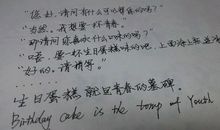 "您好,请问有什么可以帮您的吗?"
"当然,我想要一杯青春。"
"那请问你喜欢什么口味的呢?"
"哦,要一杯生日蛋糕味的吧,上面
"好的。请稍等。"
......
生日蛋糕就是青春的墓碑。
Birthday cake is the tomp of Youth